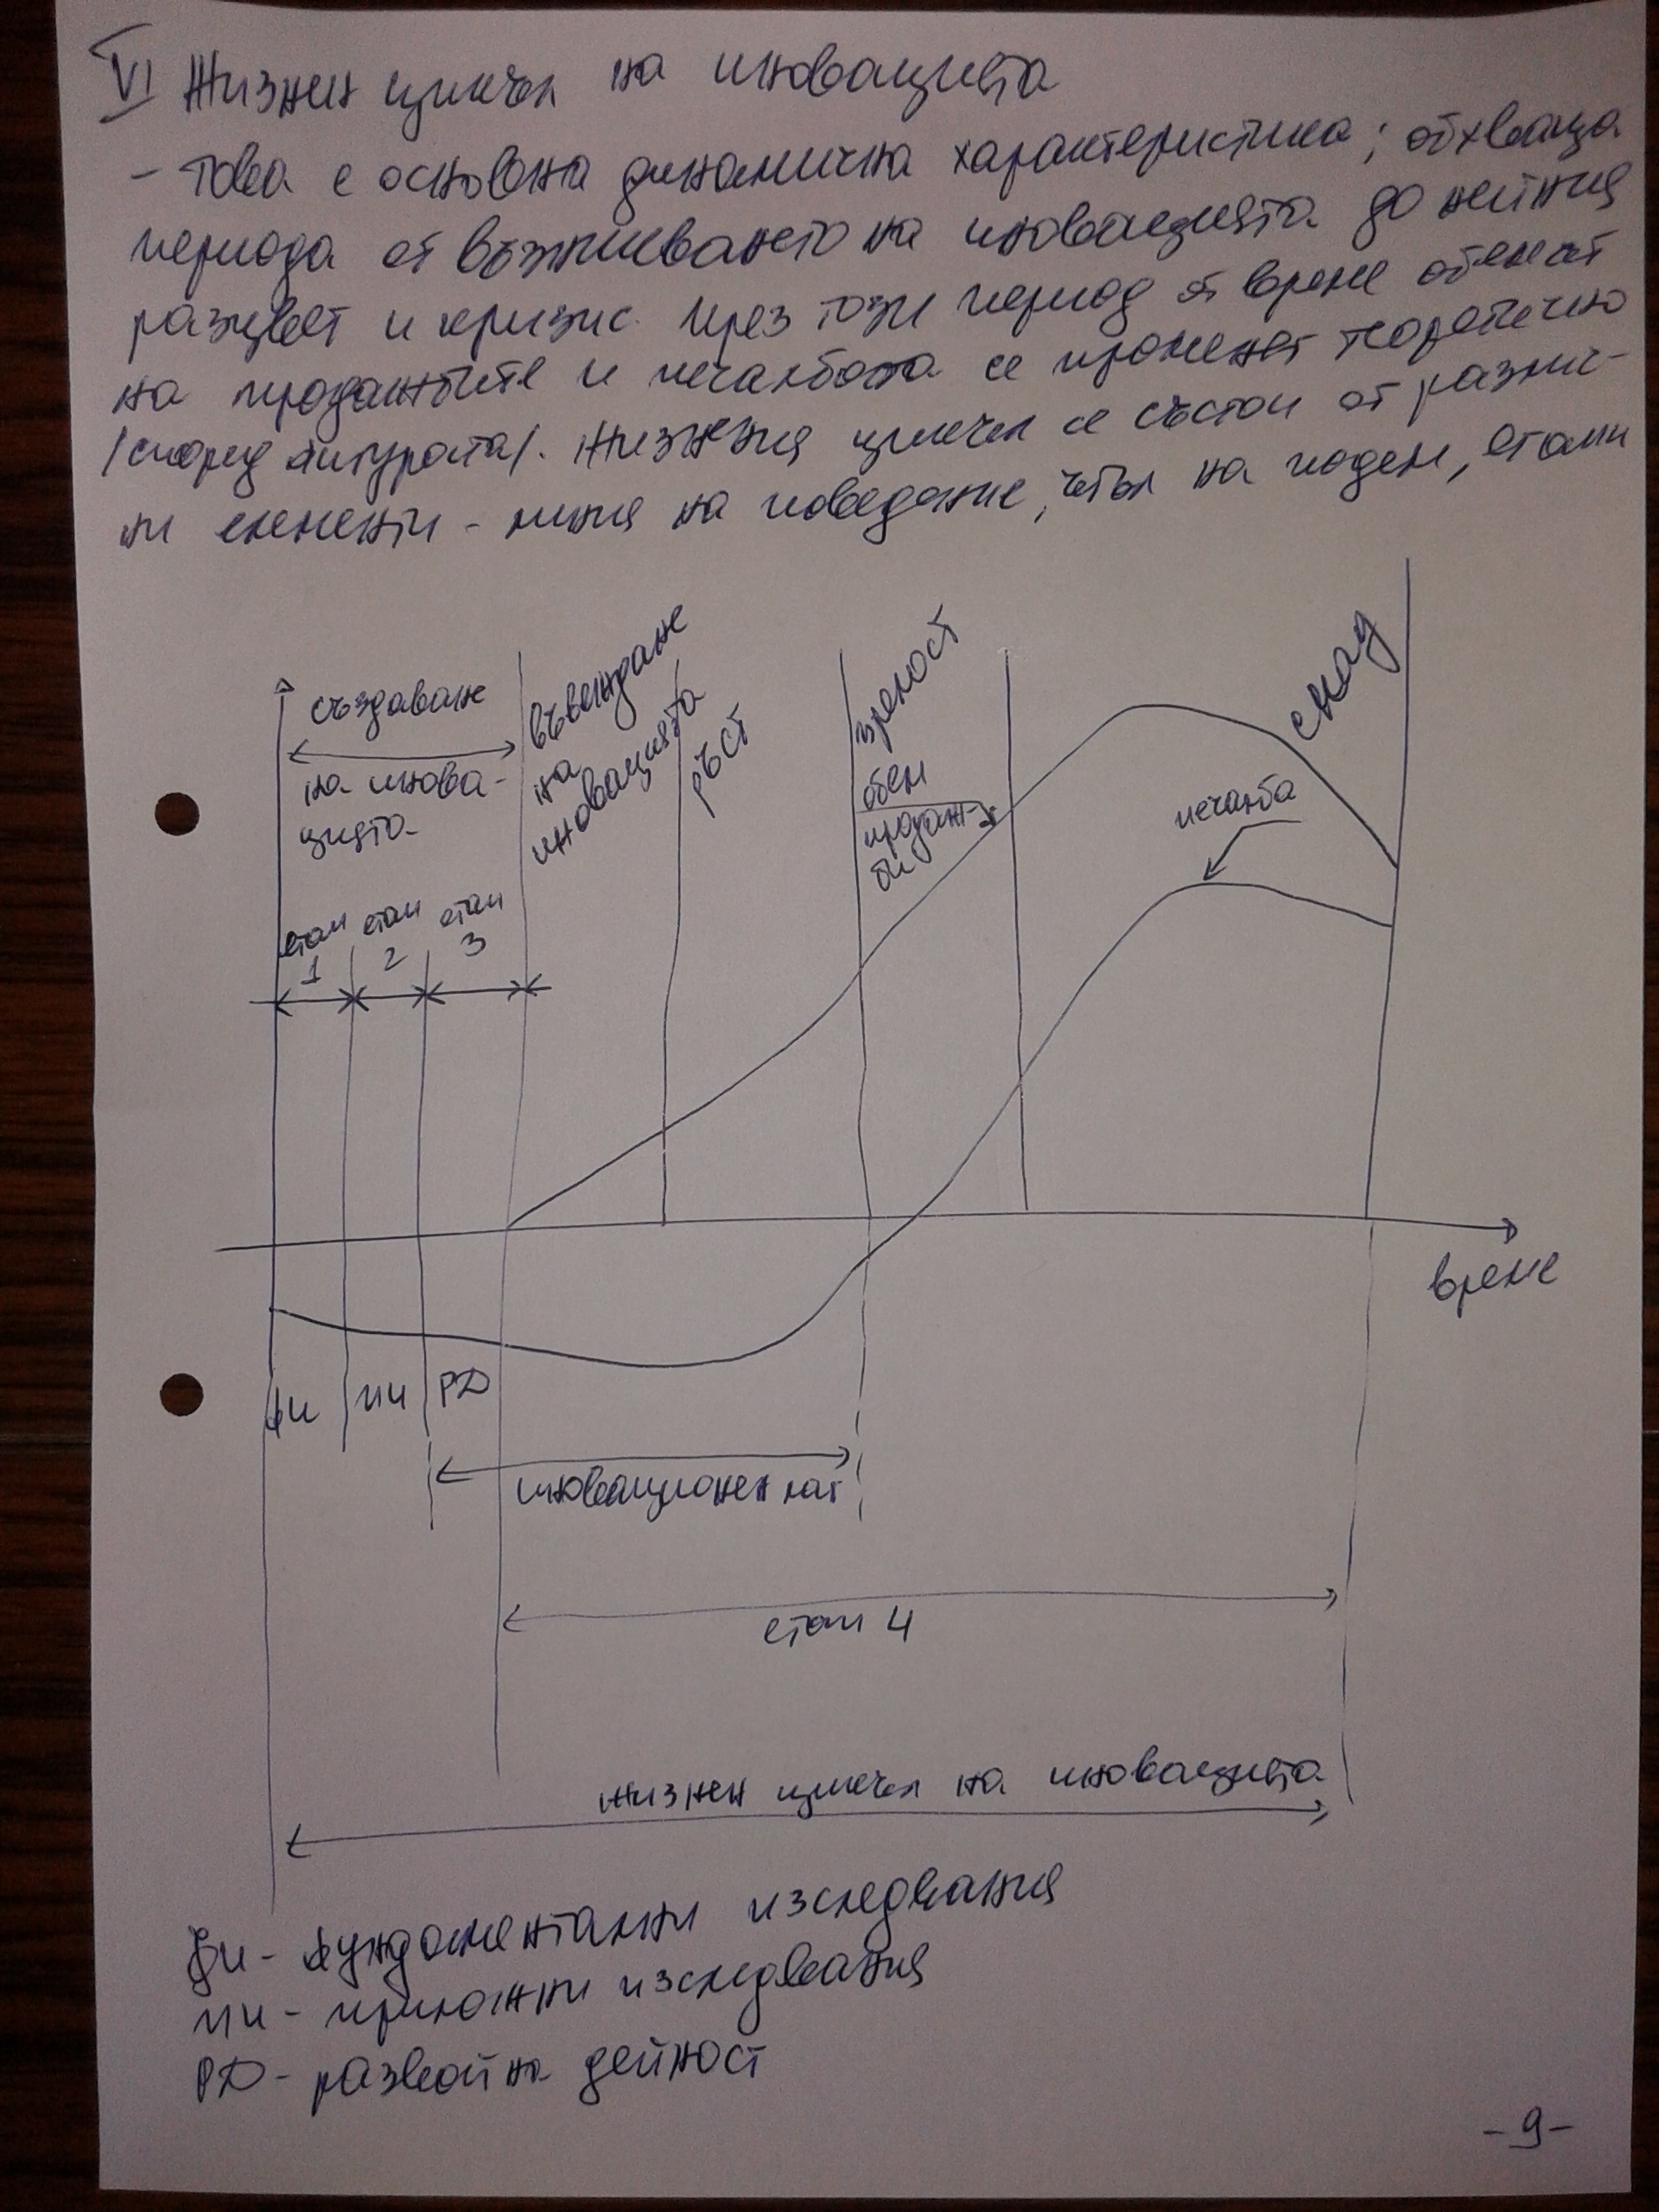 VI Жизнен цикъл на иновацията
- това е основна динамична характеристика; обхваща
периода от възникването на иновацията до нейния
разцвет и кризис. През този период от време обемът
на продажбите и печалбата се променят теоретично
/според фигурата/. Жизнения цикъл се състои от различ-
ни елементи - линия на поведение, ъгъл на подем, етапи
създаване
на инова-
цията
въвеждане
на
иновацията
ръст
зрялост
спад
обем
продаж-
би
печалба
етап 1
етап 2
етап 3
време
ФИ
ПИ
РД
иновационен лаг
етап 4
жизнен цикъл на иновацията
ФИ - фундаментални изследвания
ПИ - приложни изследвания
РД - развойна дейност
-9-